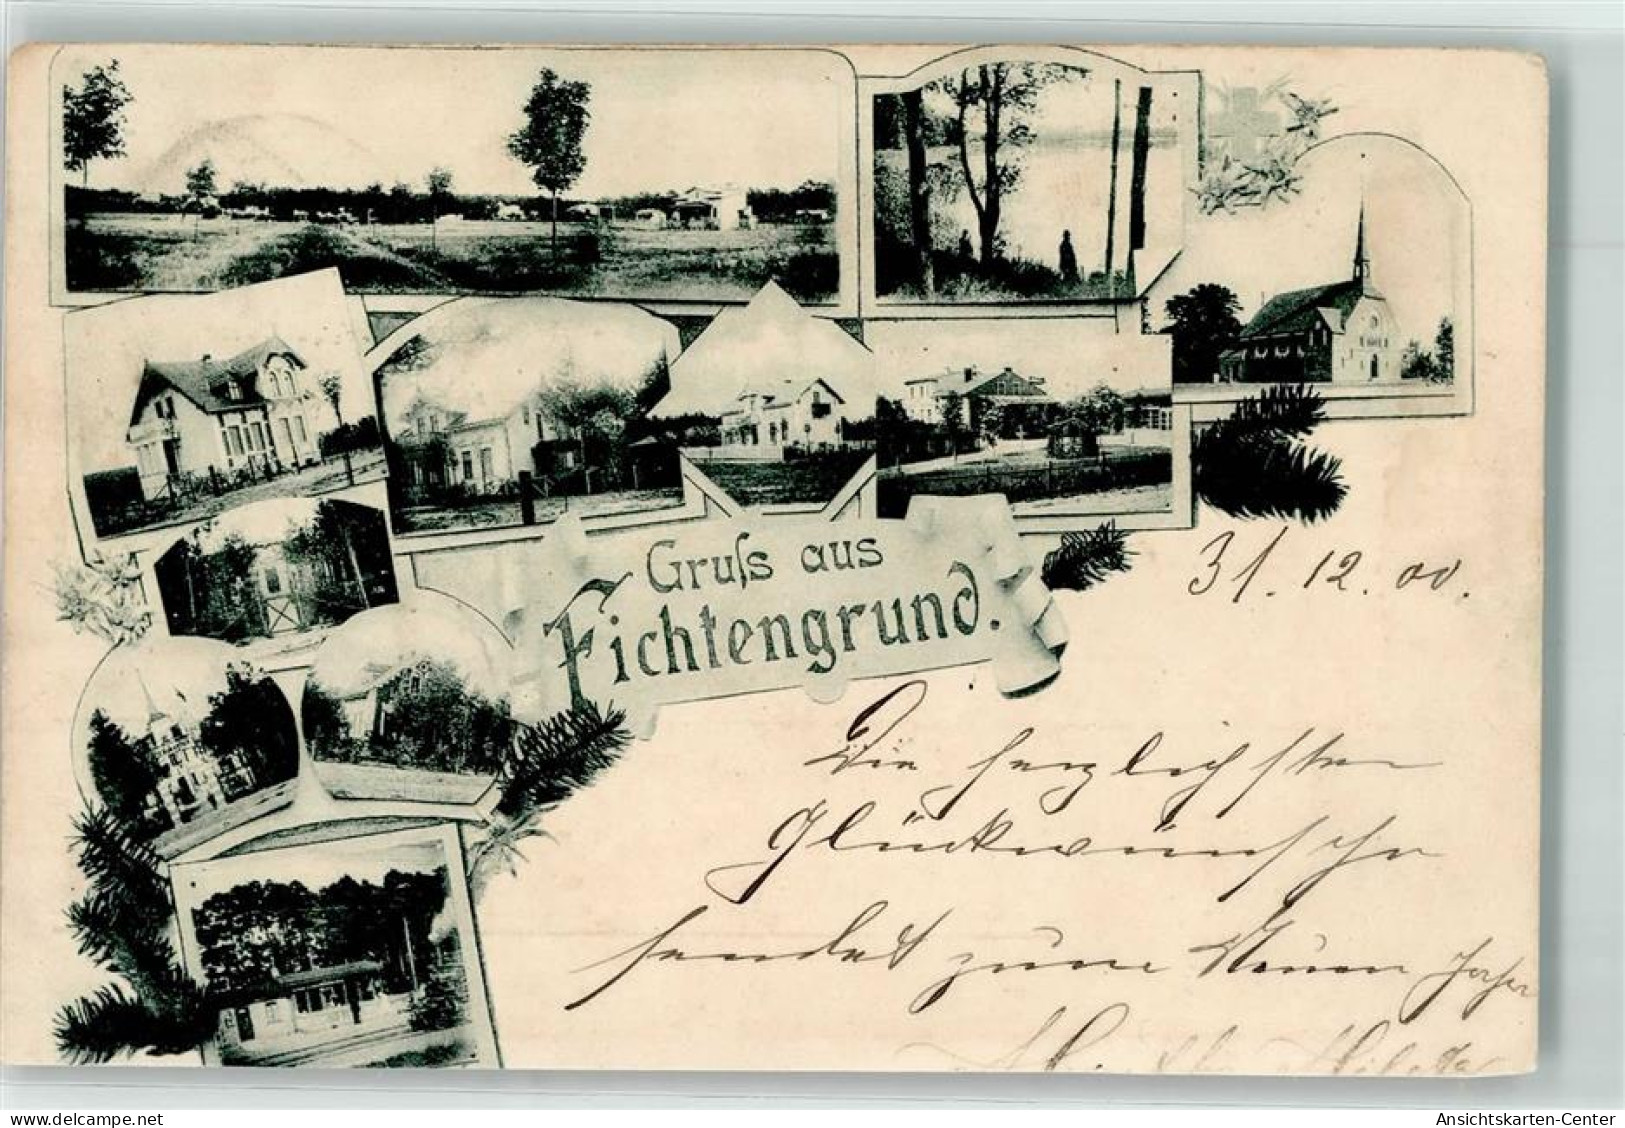 Gruſs aus
Fichtengrund.
31. 12. 00.
Die herzlichsten
Glückwünsche
sendet zum Neuen Jahr
delcampe.net
Ansichtskarten-Center